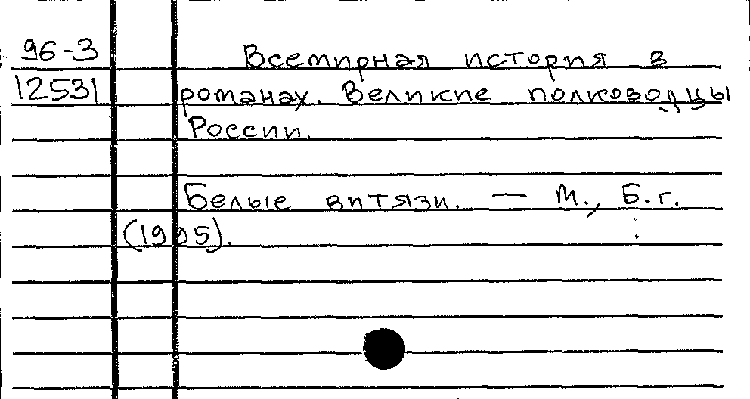 96-3
12531
Всемирная история в
романах. Великие полководцы
России.
Белые витязи. — М., Б.г.
(1995).